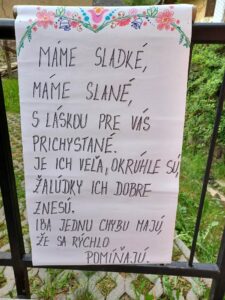 MÁME SLADKÉ,
MÁME SLANÉ,
S LÁSKOU PRE VÁS
PRICHYSTANÉ.
JE ICH VEĽA, OKRÚHLE SÚ,
ŽALÚDKY ICH DOBRE
ZNESÚ.
IBA JEDNU CHYBU MAJÚ,
ŽE SA RÝCHLO
POMÍŇAJÚ.